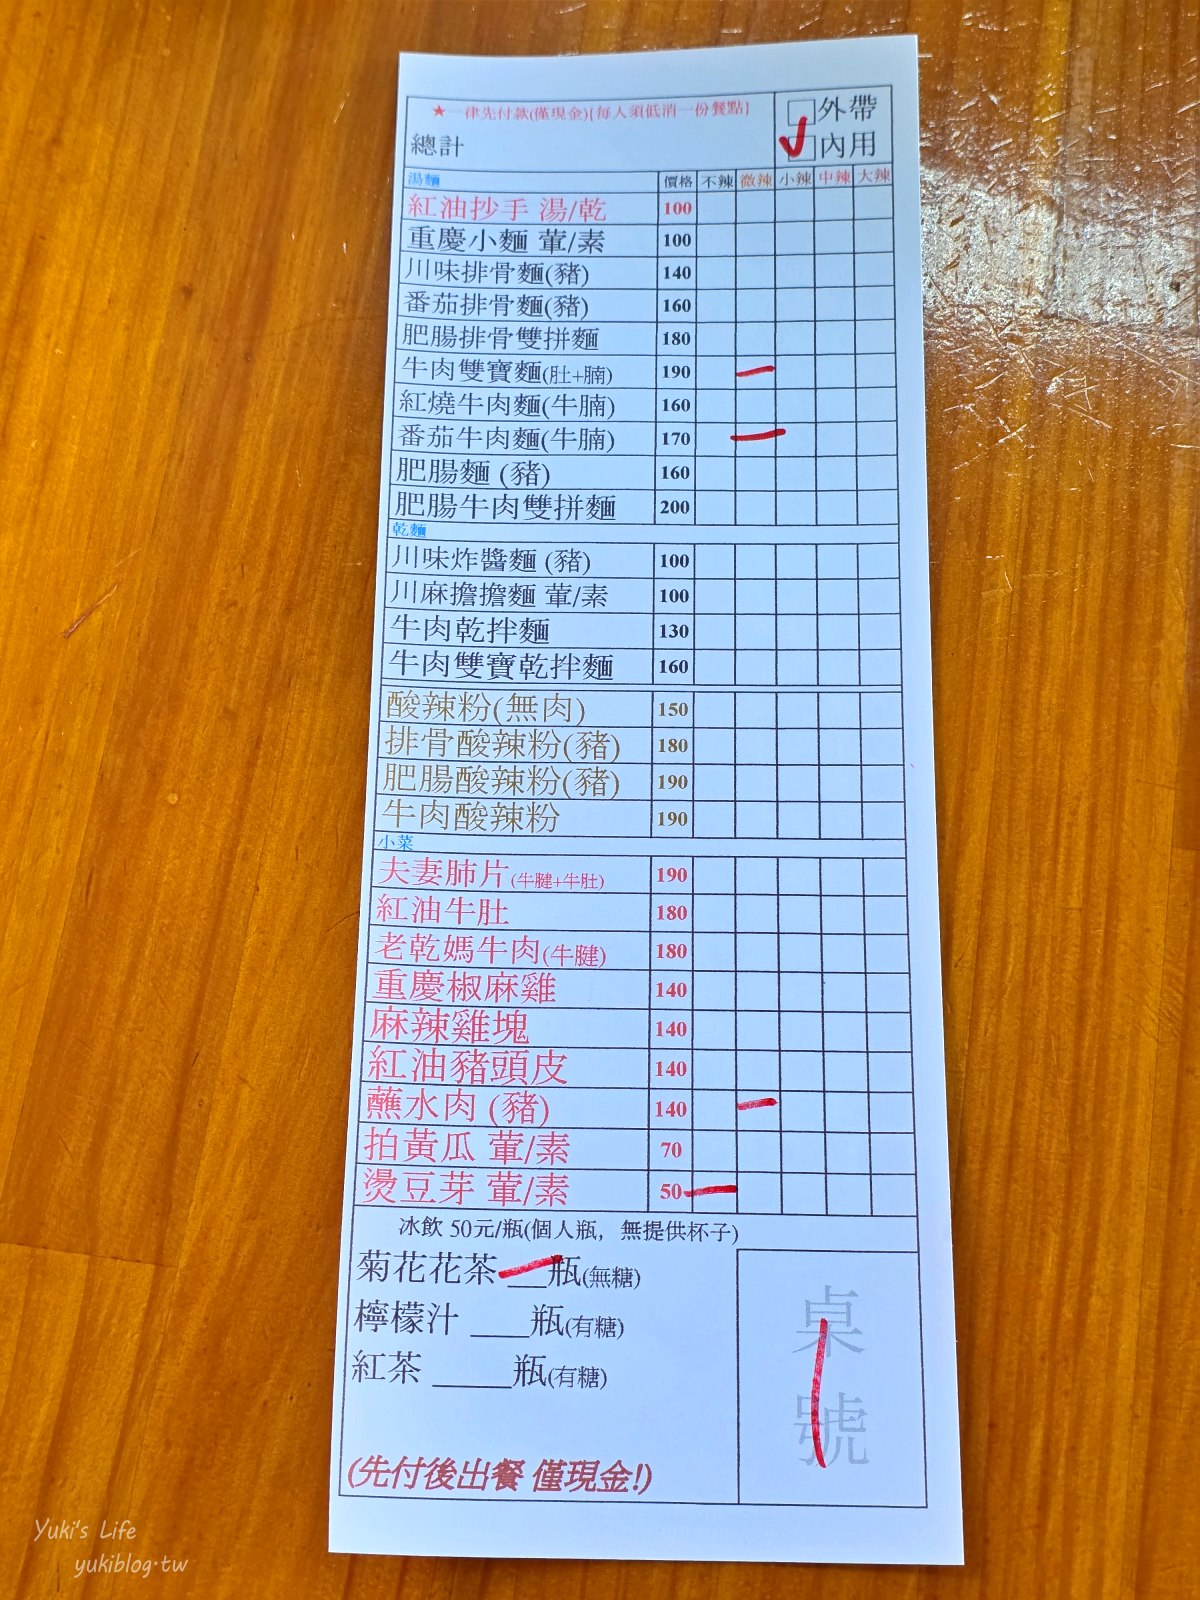 ★一律先付款(僅現金){每人須低消一份餐點}
總計
外帶
內用
湯麵 價格 不辣 微辣 小辣 中辣 大辣
紅油抄手 湯/乾 100
重慶小麵 葷/素 100
川味排骨麵(豬) 140
番茄排骨麵(豬) 160
肥腸排骨雙拼麵 180
牛肉雙寶麵(肚+腩) 190
紅燒牛肉麵(牛腩) 160
番茄牛肉麵(牛腩) 170
肥腸麵 (豬) 160
肥腸牛肉雙拼麵 200
乾麵
川味炸醬麵 (豬) 100
川麻擔擔麵 葷/素 100
牛肉乾拌麵 130
牛肉雙寶乾拌麵 160
酸辣粉(無肉) 150
排骨酸辣粉(豬) 180
肥腸酸辣粉(豬) 190
牛肉酸辣粉 190
小菜
夫妻肺片(牛腱+牛肚) 190
紅油牛肚 180
老乾媽牛肉(牛腱) 180
重慶椒麻雞 140
麻辣雞塊 140
紅油豬頭皮 140
蘸水肉 (豬) 140
拍黃瓜 葷/素 70
燙豆芽 葷/素 50
冰飲 50元/瓶(個人瓶，無提供杯子)
菊花花茶 ___瓶(無糖)
檸檬汁 ___瓶(有糖)
紅茶 ____瓶(有糖)
桌號
(先付後出餐 僅現金!)
Yuki's Life
yukiblog.tw